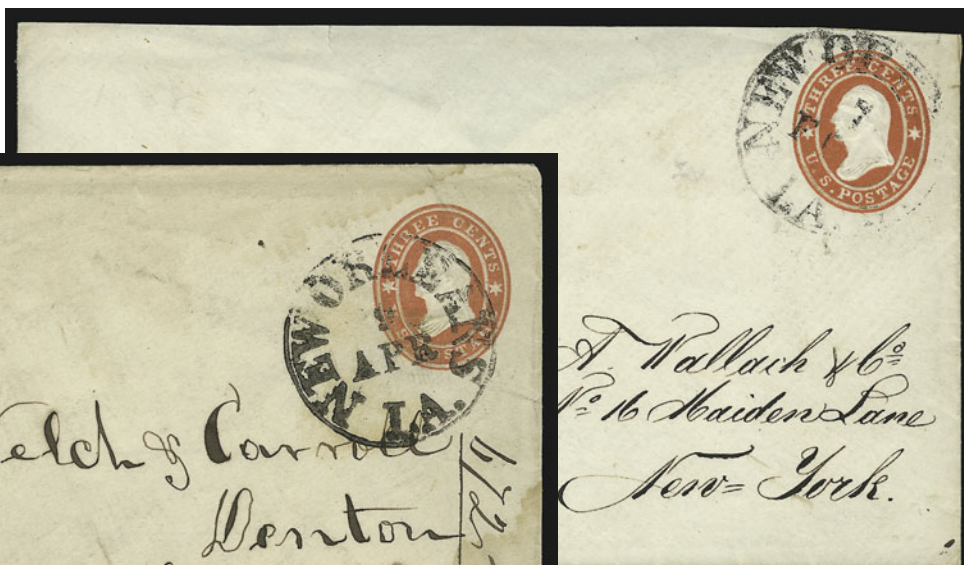 NEW OR
LA
THREE CENTS
U.S. POSTAGE
A. Wallach & Co
No 16 Maiden Lane
New=York.
NEW ORLEANS
APR
LA.
THREE CENTS
STAGE
elch & Carroll
Denton